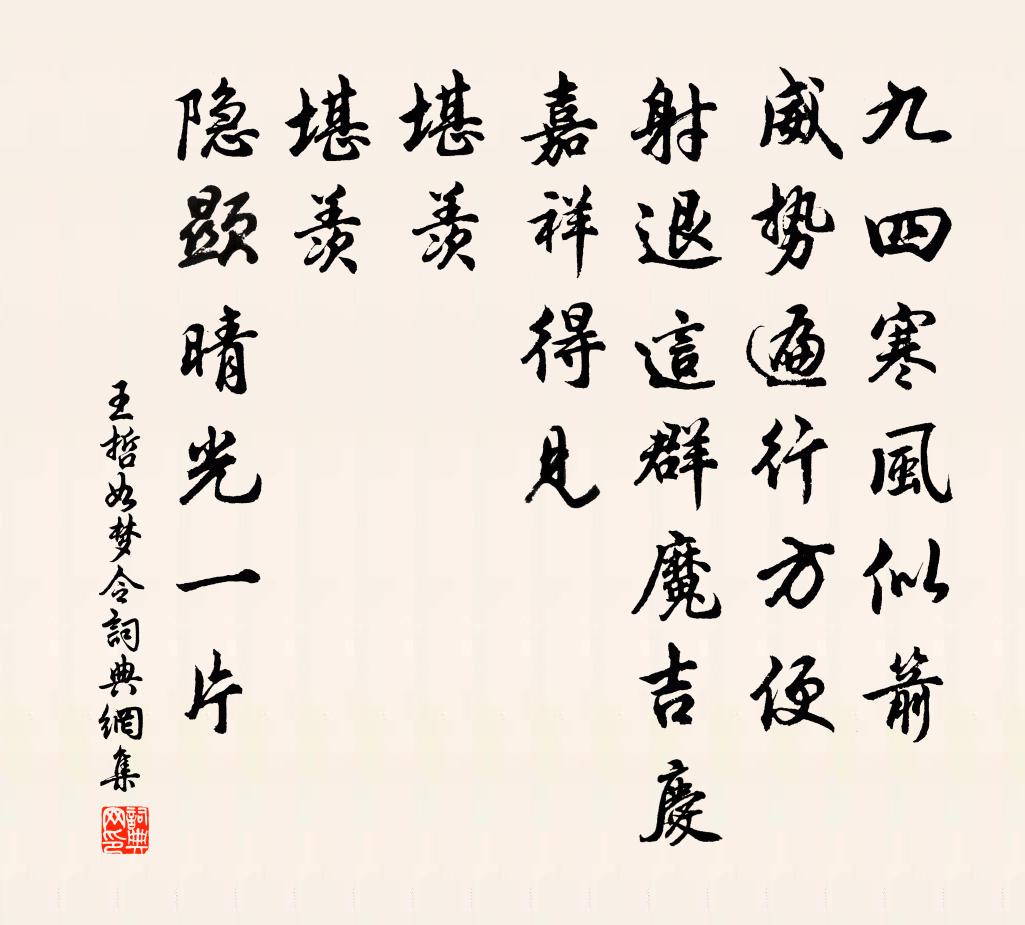 九四寒風似箭
威势遍行方便
射退這群魔吉慶
嘉祥得見
堪羨
堪羨
隐顕晴光一片
王哲如梦令詞典網集
詞典网印